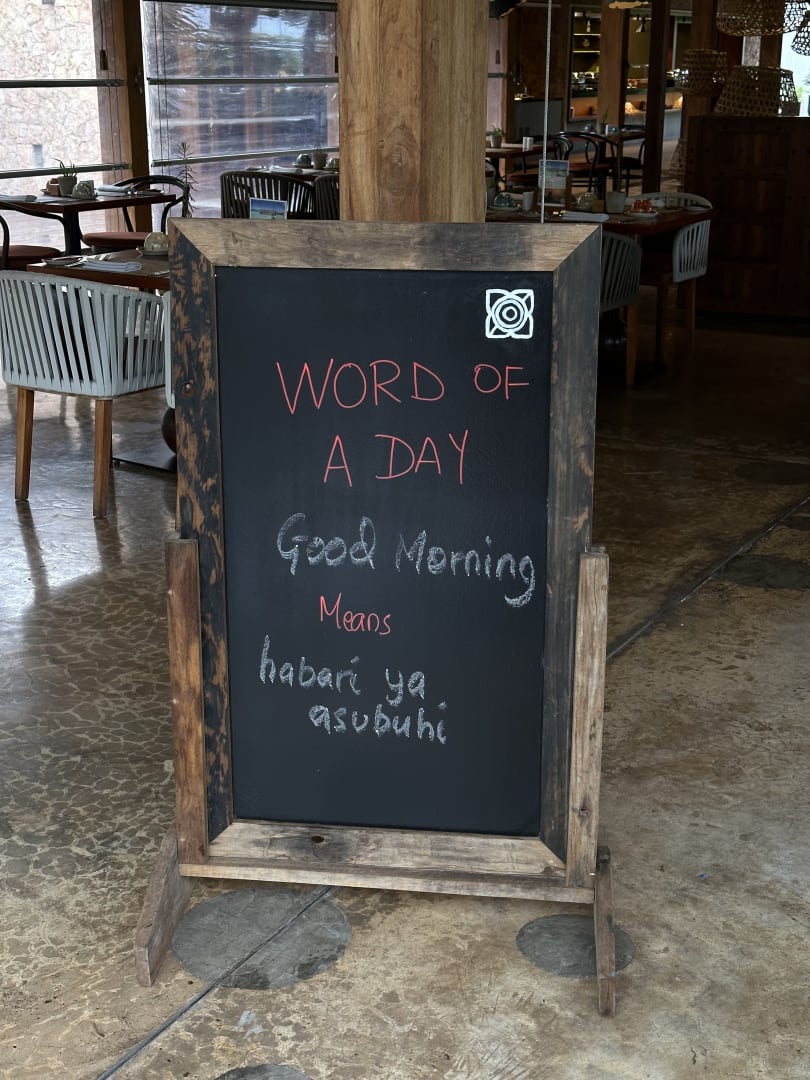 WORD OF
A DAY
Good Morning
Means
habari ya
asubuhi